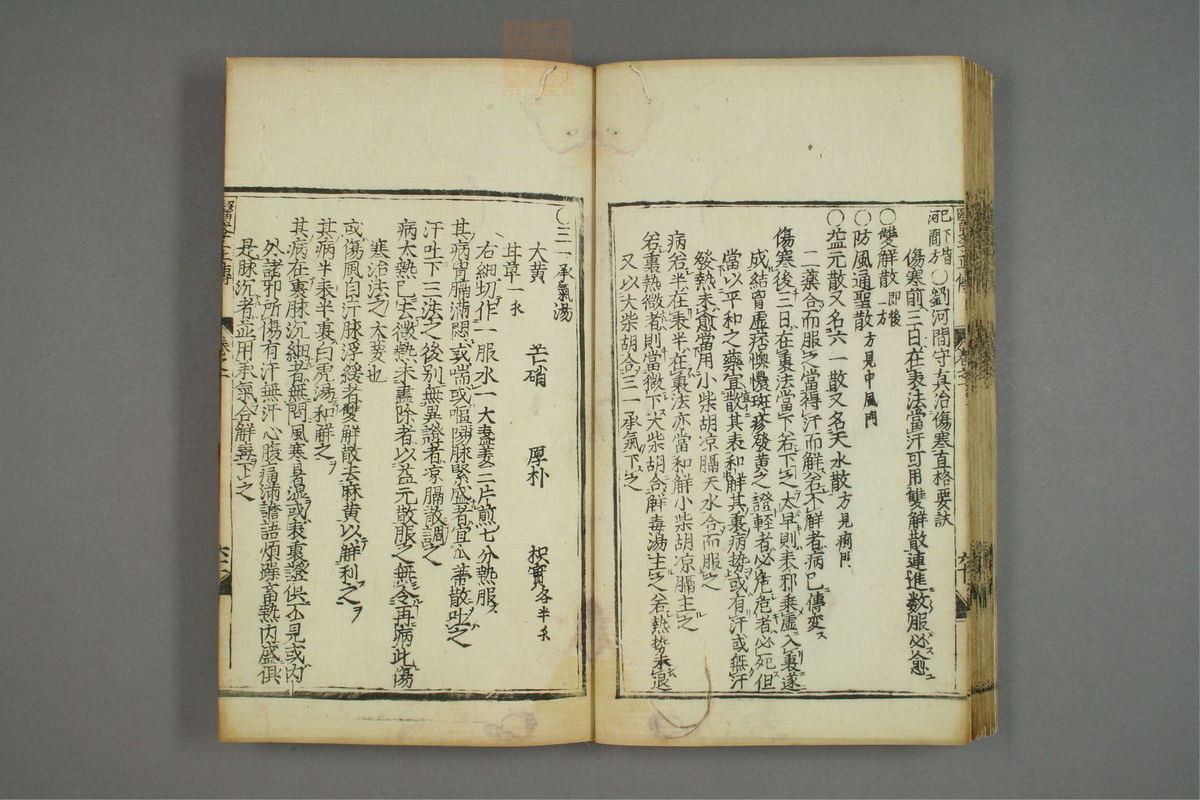 河間方
○劉河間守真治傷寒直格要訣
傷寒前三日在表法當汗可用雙解散連進数服必愈
○雙解散即後一方
○防風通聖散方見中風門
○益元散又名六一散又名天水散方見痢門
二藥合而服之當得汗而解若不解者病已傳変
傷寒後三日在裏法當下若下之太早則表邪乘虛入裏遂
成結胷虛痞懊憹斑疹發黄之證輕者必危危者必死但
當以平和之藥宜散其表和觧其裏病势或有汗或無汗
發熱未愈當用小柴胡凉膈天水合而服之
病若半在表半在裏法亦當和解小柴胡凉膈主之
若裏熱微者則當微下大柴胡合解毒湯主之若熱势未退
又以大柴胡合三一承氣下之
○三一承氣湯
大黄 芒硝 厚朴 枳實各半
甘草一
右細切作一服水一大盞姜三片煎七分熱服
其病胷膈滿悶或喘或嘔陽脉緊盛者宜瓜蒂散吐之
汗吐下三法之後別無異證者凉膈散調之
病大熱已去微熱未盡除者以益元散服之無令再病此傷
寒治法之大要也
或傷風自汗脉浮緩者雙解散去麻黄以解利之
其病半表半裏白虎湯和解之
其病在裏脉沉細者無問風寒暑濕或表裏證俱不見或内
外諸邪所傷有汗無汗心腹痛滿譫語煩躁畜熱内盛俱
是脉沉者並用承氣合解毒下之